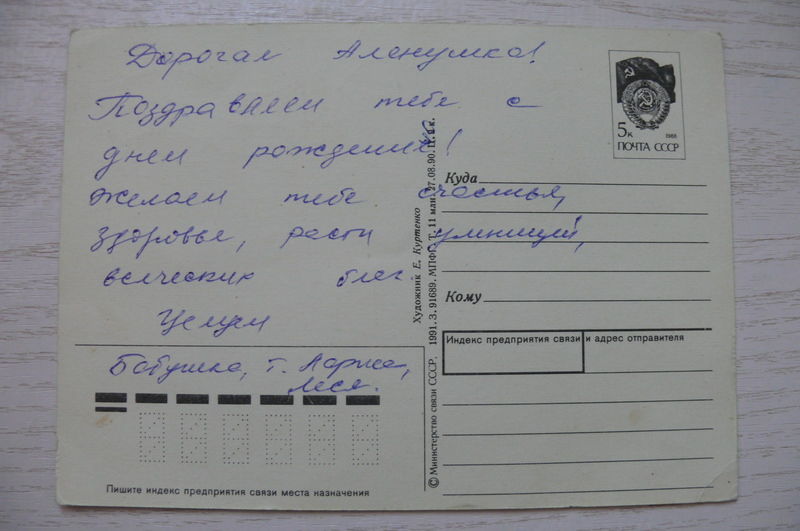 Дорогая Аленушка!
Поздравляем тебе с
днем рождения!
Желаем тебе счастья,
здоровье, расти умницей,
всяческих благ.
Целуем
Бабушка, т. Лариса,
Леся.
5к 1988
ПОЧТА СССР
Куда
Кому
Индекс предприятия связи и адрес отправителя
Пишите индекс предприятия связи места назначения
Художник Е. Куртенко
© Министерство связи СССР. 1991. З. 91689. МПФГ. Т. 11 млн. 27.08.90. Ц. 4 к.